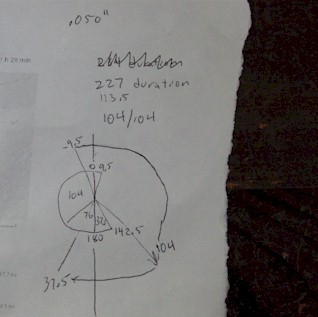 .050"
227 duration
113.5
104/104
-9.5
0 9.5
104
76
142.5
180
104
37.5